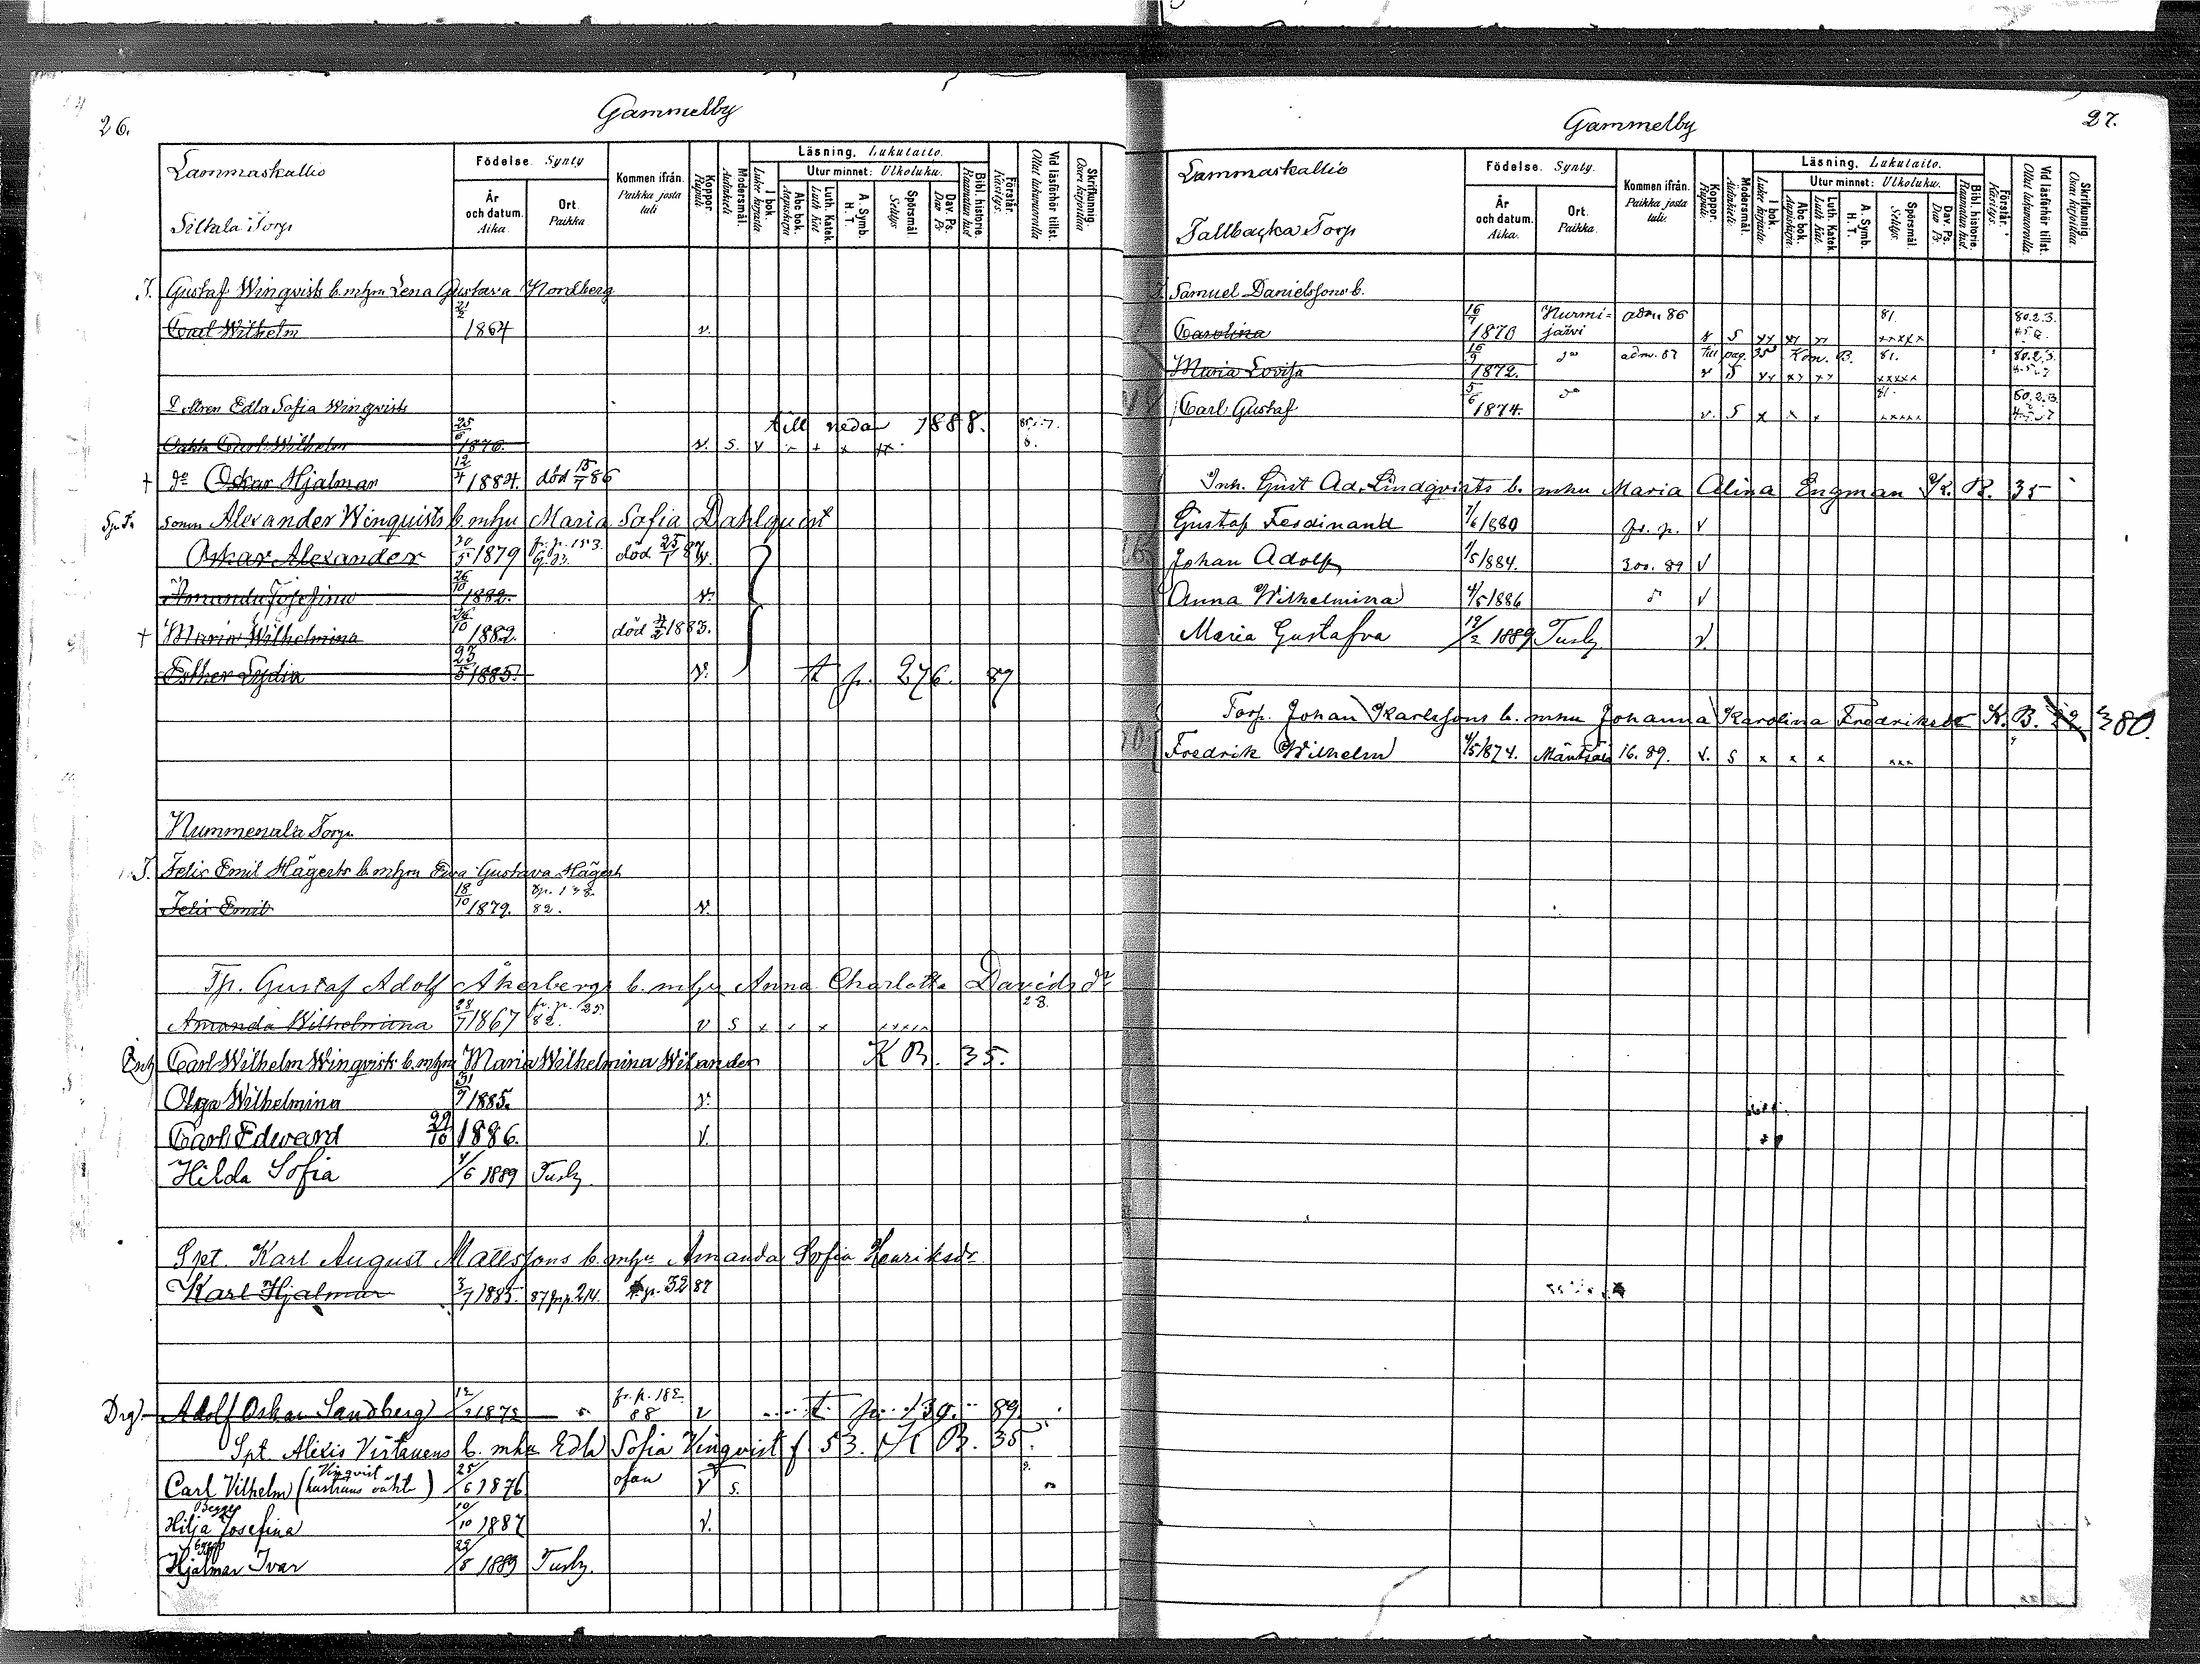 26.
Gammelby
Lammaskallio
Siltala Torp
Födelse. Synty
År och datum. Aika.
Ort. Paikka
Kommen ifrån. Paikka josta tuli
Koppor. Rupuli
Modersmål. Äidinkieli
Läsning. Lukutaito.
I bok. Lukee kirjasta
Utur minnet: Ulkoluku.
Abc bok. Aapiskirja
Luth. Katek. Luth. kat.
A. Symb. H. T.
Spörsmål. Selitys
Dav. Ps. Dav. Ps.
Bibl. historie. Raamatun hist.
Förstår. Käsitys.
Vid läsförhör tillst. Ollut lukuvuorolla
Skrifkunnig. Osaa kirjoittaa
T. Gustaf Winqvists b. m hju Lena Gustava Nordberg
Carl Wilhelm 1864 v.
Edla Sofia Winqvists
till nedan 1888.
Carl Wilhelm 25/6 1876. v. s. v
† do Oskar Hjalmar 12/4 1884. död 15/7 86
sonen Alexander Winquists b. mhju Maria Sofia Dahlquist
Oskar Alexander 30/5 1879 fr. p. 153. död 25/1 87 v.
Amanda Josefina 26/10 1882. v.
† Maria Wilhelmina 26/10 1882. död 4/2 1883.
Esther Lydia 23/5 1885. v. t. p. 276. 87
Nummenala Torp
T. Felix Emil Hägerts b. mhju Eva Gustava Hägert
Felix Emil 18/10 1879. 82. v.
Tp. Gustaf Adolf Åkerbergs b. mhju Anna Charlotta Davidsdr
Amanda Wilhelmina 28/7 1867 fr. p. 25. 82. v s x x x x x x x x
Inh Carl Wilhelm Winqvists b. mhju Maria Wilhelmina Wilander K B. 35.
Olga Wilhelmina 31/7 1885. v.
Carl Edward 29/10 1886. v.
Hilda Sofia 4/6 1889 Tusby.
Spt. Karl August Matessons b. mhju Amanda Sofia Henriksdr
Karl Hjalmar 3/7 1885. 87 fr p. 214. t. p. 32 87
Drg Adolf Oskar Sandberg 12/2 1872 fr. p. 182 88 v t p. 139. 89
Spt. Alexis Virtanens b. mhu Edla Sofia Vinqvist f. 53. K B. 35.
Carl Vilhelm (Vinqvist hustruns oäkta) 25/6 1876 ofan v s.
Hilja Josefina 10/10 1887 v.
Hjalmar Ivar 22/8 1889 Tusby.
27.
Gammelby
Lammaskallio
Tallbacka Torp
Födelse. Synty.
År och datum. Aika.
Ort. Paikka.
Kommen ifrån. Paikka josta tuli.
Koppor. Rupuli.
Modersmål. Äidinkieli.
Läsning. Lukutaito.
I bok. Lukee kirjasta.
Utur minnet: Ulkoluku.
Abc bok. Aapiskirja.
Luth. Katek. Luth. kat.
A. Symb. H. T.
Spörsmål. Selitys.
Dav. Ps. Dav. Ps.
Bibl. historie. Raamatun hist.
Förstår. Käsitys.
Vid läsförhör tillst. Ollut lukuvuorolla.
Skrifkunnig. Osaa kirjoittaa.
T. Samuel Danielssons b.
Carolina 16/7 1870 Nurmijärvi adm 86 v S xx xx xx 81. xxxxx 80.2.3.
Maria Lovisa 16/9 1872. do adm. 87 till pag. 35 Kom. B. 81. v S xx xx xx xxxxx 80.2.3.
Carl Gustaf 5/6 1874. do v. S x x x 81. xxxxx 80.2.3.
Inh. Gust Ad. Lindqvists b. mhu Maria Alina Engman K. B. 35
Gustaf Ferdinand 7/6 1880 fr. p. v
Johan Adolf 1/5 1884. 300. 89 v
Anna Wilhelmina 4/5 1886 v
Maria Gustafva 19/2 1889 Tusby v.
Torp. Johan Karlssons b. mhu Johanna Karolina Fredriksdr K. B. 380.
Fredrik Wilhelm 4/5 1874. Mäntsälä 16. 89. v. S x x x xxx